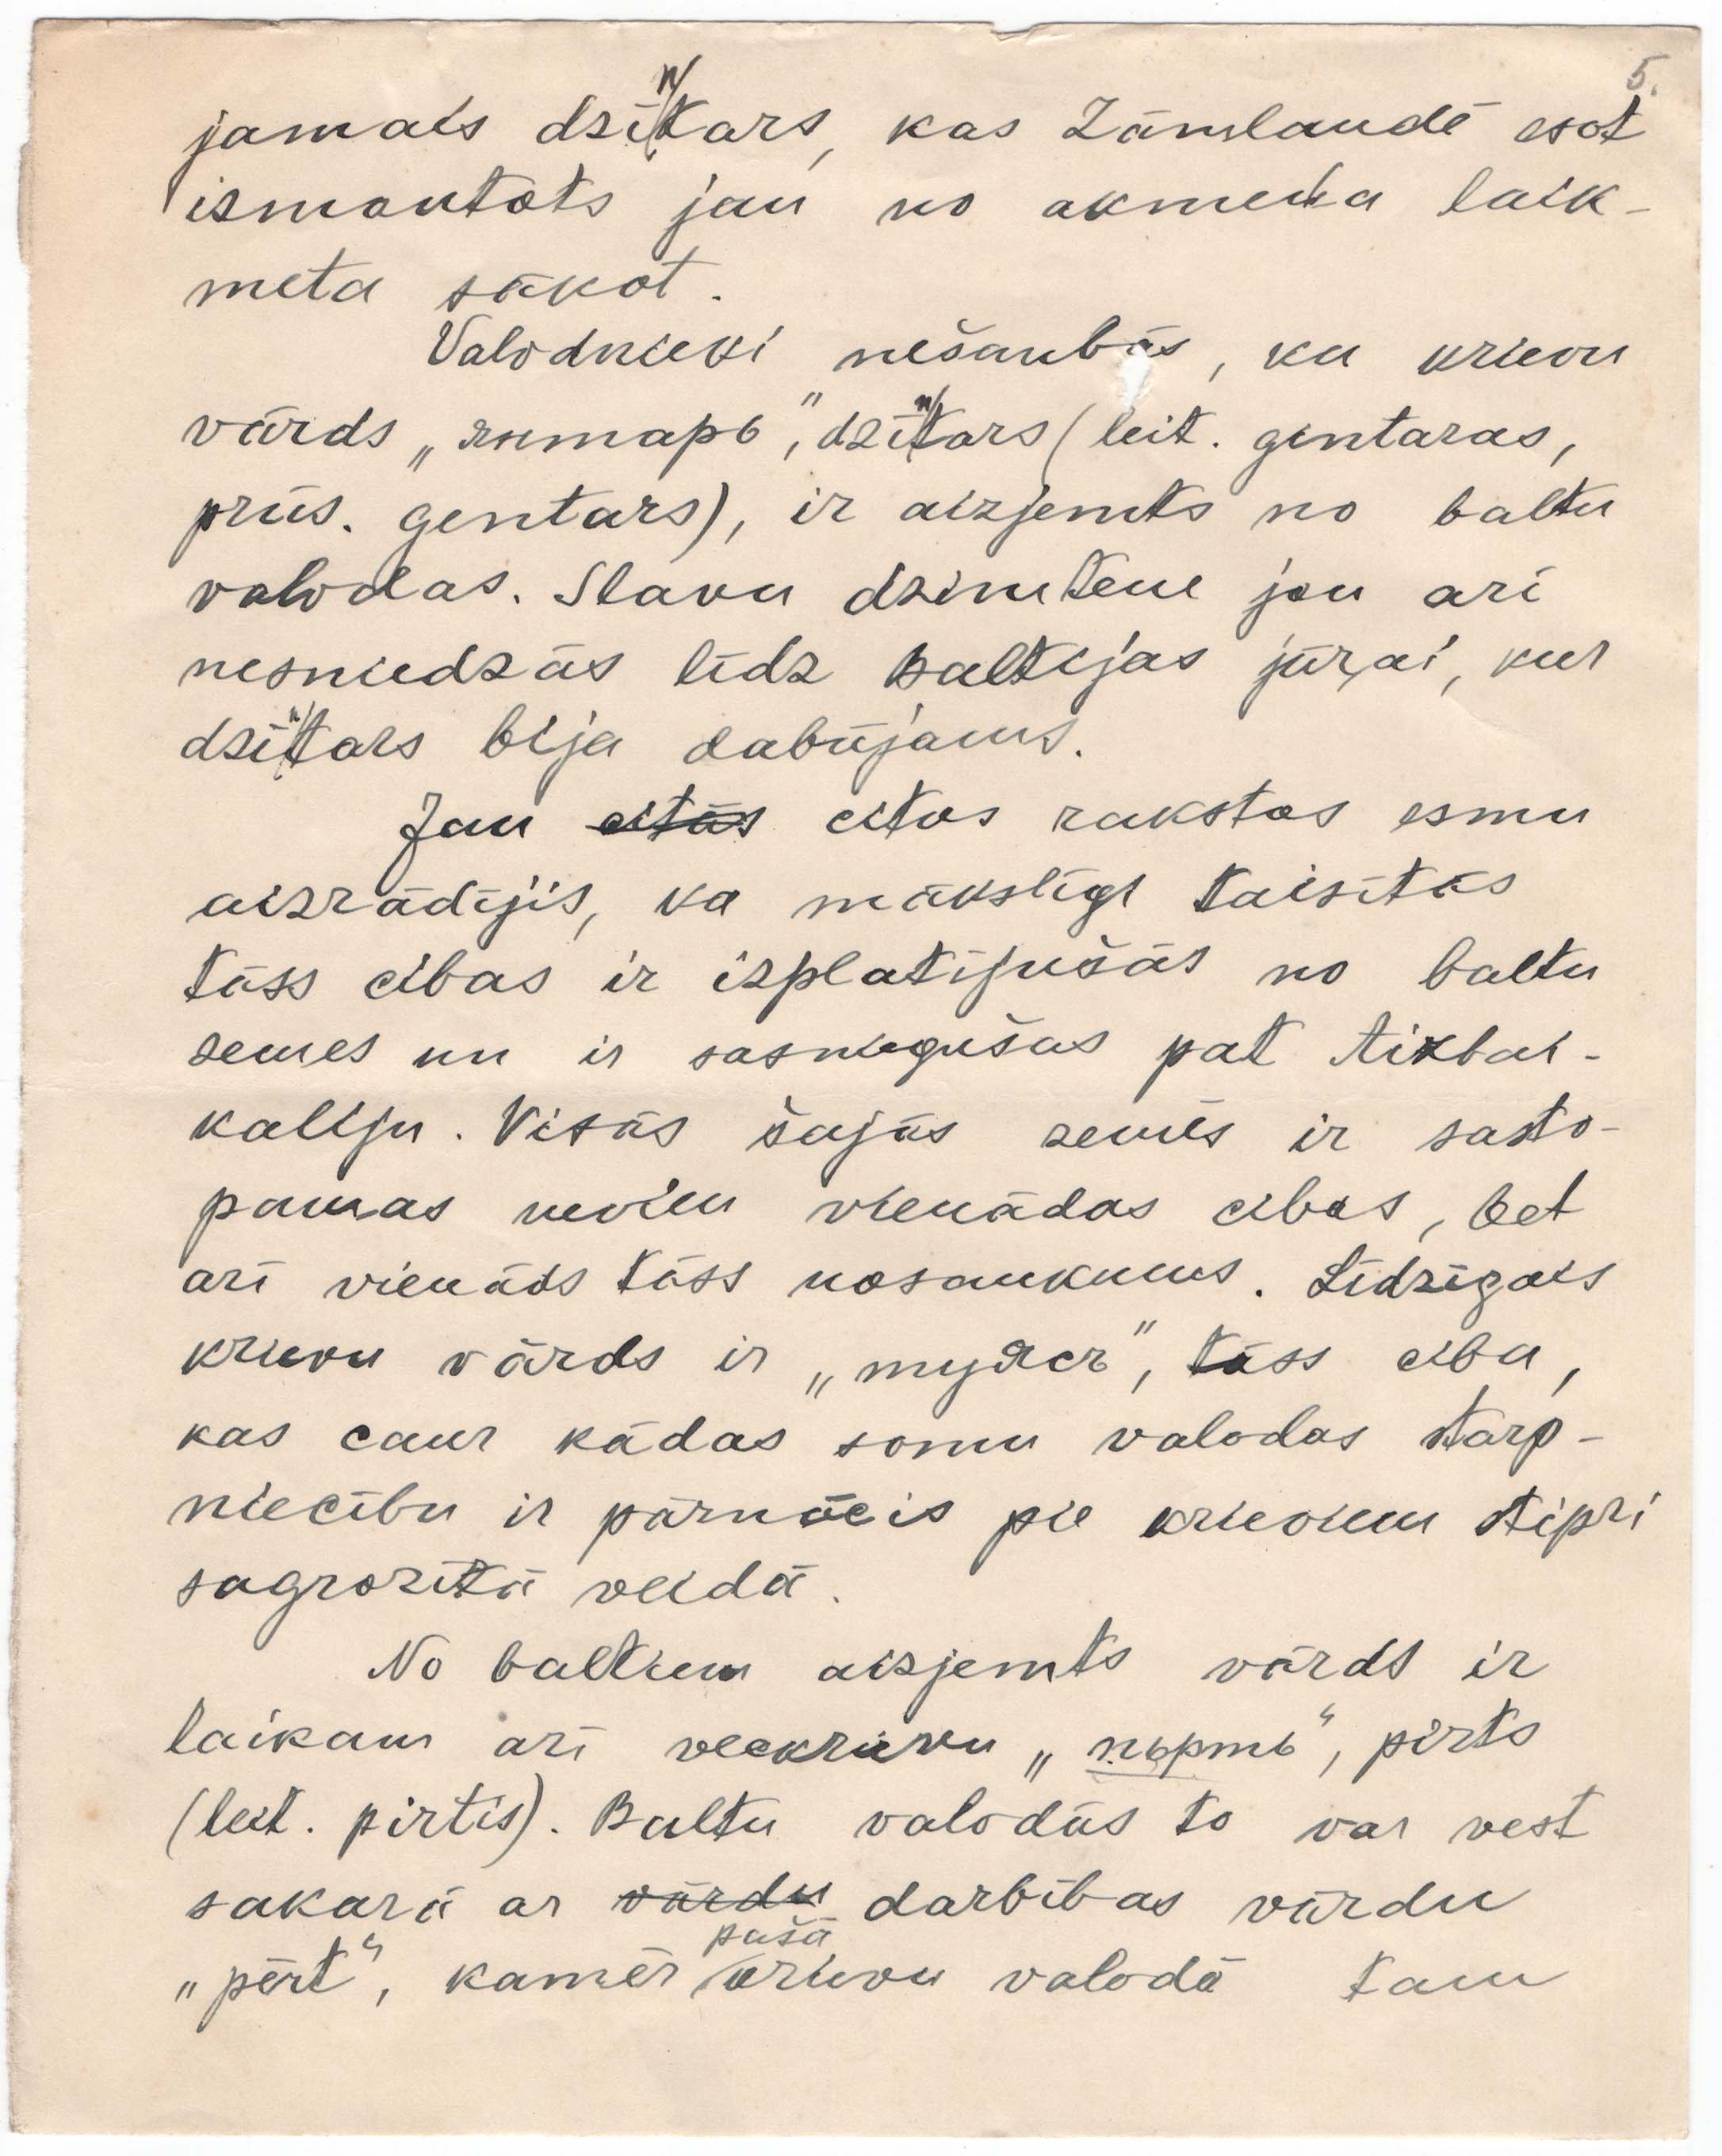 5.
jamais dzintars, kas Zāmlandē esot
izmantots jau no akmeņa laik-
meta sākot.
Valodnieki nešaubās, ka krievu
vārds „янтарь", dzintars (leit. gentaras,
prūs. gentars), ir aizjemts no baltu
valodas. Slavu dzimtene jau arī
nesniedzās līdz Baltijas jūrai, kur
dzintars bija dabūjams.
Jau citās citos rakstos esmu
aizrādījis, ka mākslīgi taisītās
tāss cibas ir izplatījušās no baltu
zemes un ir sasniegušas pat Aizbai-
kaliju. Visās šajās zemēs ir sasto-
pamas nevien vienādas cibas, bet
arī vienāds tāss nosaukums. Līdzīgais
krievu vārds ir „туясъ", tāss ciba,
kas caur kādas somu valodas starp-
niecību ir pārnācis pie krieviem stipri
sagrozītā veidā.
No baltiem aizjemts vārds ir
laikam arī veckrievu „пърть", pirts
(leit. pirtis). Baltu valodās to var vest
sakarā ar vārdu darbības vārdu
pašā
„pērt", kamēr krievu valodā tam